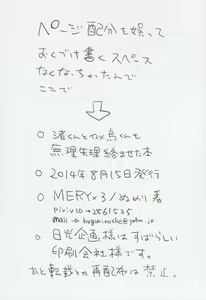 ページ配分を誤って
おくづけ書くスペース
なくなっちゃったんで
ここで
○ 渚くんと
無理矢理絡ませた本
○ 2014年8月15日発行
○ MERY×3/ぬめり 著
pixiv ID→2861535
mail→
○ 日光企画様はすばらしい
印刷会社様です。
あと転載とか再配布は禁止。